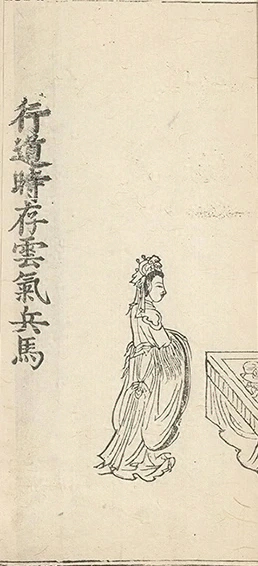 行道時存雲氣兵馬